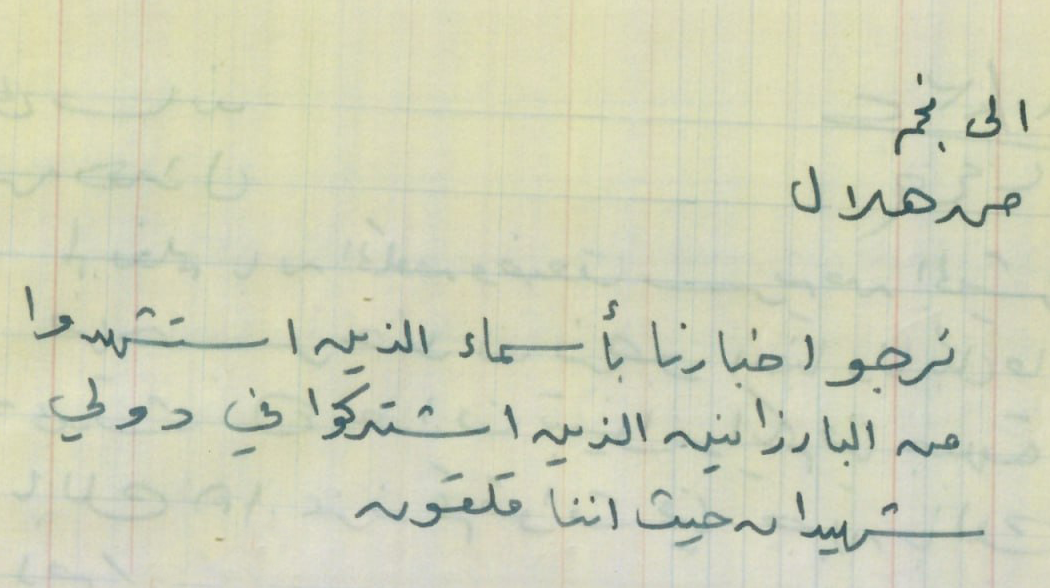 الى نجم
من هلال
نرجو اخبارنا بأسماء الذين استشهدوا
من البارزانين الذين اشتركوا في دولي
شهيدان حيث اننا قلقون